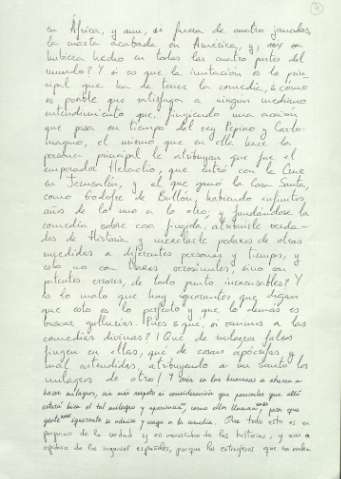 en África, y aun, si fuera de cuatro jornadas,
la cuarta acababa en América, y, así se
hubiera hecho en todas las cuatro partes del
mundo? Y si es que la imitación es lo prin-
cipal que ha de tener la comedia, ¿cómo
es posible que satisfaga a ningún mediano
entendimiento que, fingiendo una acción
que pasa en tiempo del rey Pepino y Carlo-
magno, el mismo que en ella hace la
persona principal le atribuyan que fue el
emperador Heraclio, que entró con la Cruz
en Jerusalén, y el que ganó la Casa Santa,
como Godofre de Bullón, habiendo infinitos
años de lo uno a lo otro; y fundándose la
comedia sobre cosa fingida, atribuirle verda-
des de historia, y mezclarle pedazos de otras
sucedidas a diferentes personas y tiempos, y
esto no con trazas verosímiles, sino con
patentes errores, de todo punto inexcusables? Y
es lo malo que hay ignorantes que digan
que esto es lo perfecto y que lo demás es
buscar gullurías. Pues ¿qué, si venimos a las
comedias divinas? ¡Qué de milagros falsos
fingen en ellas, qué de cosas apócrifas y
mal entendidas, atribuyendo a un santo los
milagros de otro! Y aun en las humanas se atreven a
hacer milagros, sin más respeto ni consideración que parecerles que allí
estará bien el tal milagro y apariencia, como ellos llaman, para que
gente ignorante se admire y venga a la comedia. Que todo esto es en
perjuicio de la verdad y en menoscabo de las historias, y aun en
oprobio de los ingenios españoles, porque los extranjeros, que con